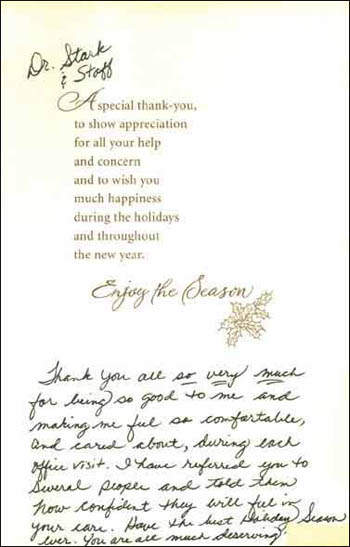 Dr. Stark
& Staff
A special thank-you,
to show appreciation
for all your help
and concern
and to wish you
much happiness
during the holidays
and throughout
the new year.
Enjoy the Season
Thank You all so very much
for being so good to me and
making me feel so comfortable,
and cared about, during each
office visit. I have referred you to
several people and told them
how confident they will feel in
your care. Have the best Holiday Season
ever. You are all much deserving!